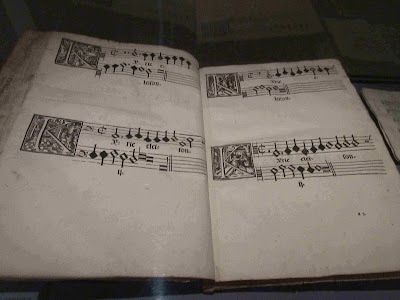 Kyrie e-
leison.
Kyrie elei son.
ij.
Kyrie e-
leison.
Kyrie elei son.
ij.